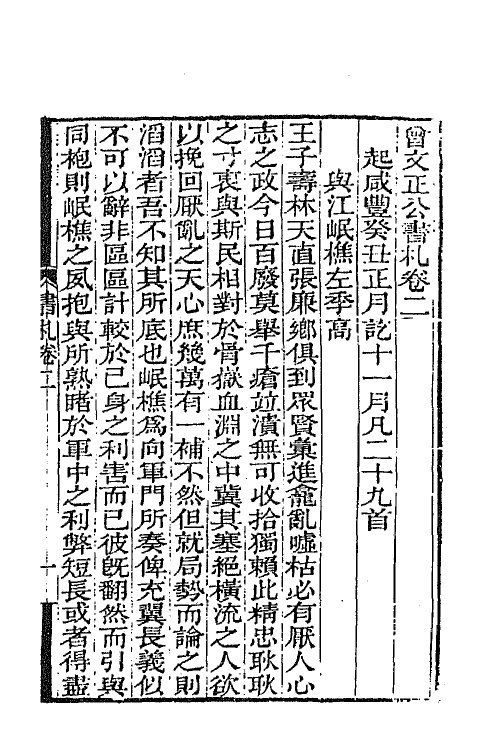 曾文正公書札卷二
起咸豐癸丑正月訖十一月凡二十九首
與江岷樵左季高
王子壽林天直張廉鄉俱到眾賢彙進龕亂噓枯必有厭人心
志之政今日百廢莫舉千瘡竝潰無可收拾獨賴此精忠耿耿
之寸衷與斯民相對於骨嶽血淵之中冀其塞絕橫流之人欲
以挽回厭亂之天心庶幾萬有一補不然但就局勢而論之則
滔滔者吾不知其所底也岷樵為向軍門所奏俾充翼長義似
不可以辭非區區計較於己身之利害而已彼旣翻然而引與
同袍則岷樵之夙抱與所熟睹於軍中之利弊短長或者得盡
書札卷二
一